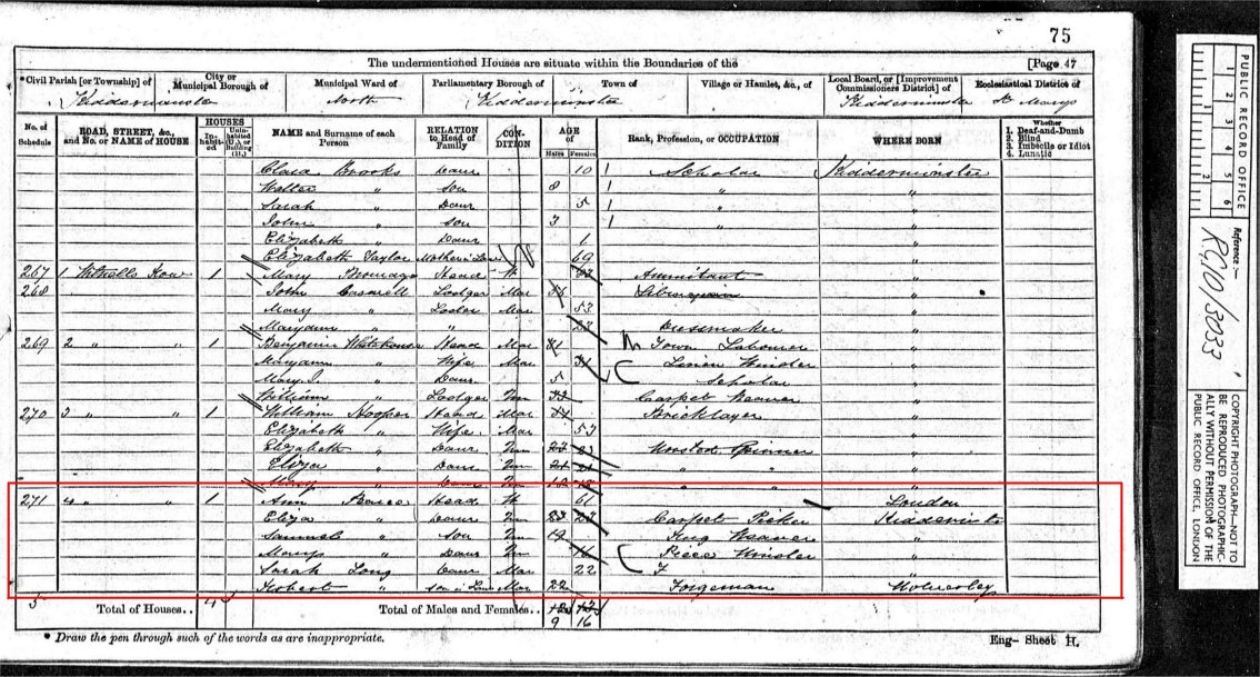 75
The undermentioned Houses are situate within the Boundaries of the [Page 47
*Civil Parish [or Township] of City or Municipal Borough of Municipal Ward of Parliamentary Borough of Town of Village or Hamlet, &c., of Local Board, or [Improvement Commissioners District] of Ecclesiastical District of
Kidderminster North Kidderminster Kidderminster St Marys
No. of Schedule ROAD, STREET, &c., and No. or NAME of HOUSE HOUSES Inhabited Uninhabited (U.) or Building (B.) NAME and Surname of each Person RELATION to Head of Family CONDITION AGE of Males Females Rank, Profession, or OCCUPATION WHERE BORN Whether 1. Deaf-and-Dumb 2. Blind 3. Imbecile or Idiot 4. Lunatic
Clara Brooks Daur 10 Scholar Kidderminster
Walter " Son 8 " "
Sarah " Daur 5 "
John " Son 3 " "
Elizabeth " Daur 1 "
Elizabeth Taylor Mother in Law 69 "
267 1 Row 1 Mary Head W Annuitant "
268 John Lodger Mar "
Mary " Mar 53 "
Maryann " " Dressmaker "
269 2 " " 1 Benjamin Whitehouse Head Mar Town Labourer "
Maryann " Wife Mar 31 Linen Winder "
" Daur 5 Scholar "
William " Lodger Un Carpet Weaver "
270 3 " " 1 William Hooper Head Mar Bricklayer "
Elizabeth " Wife Mar 53 "
Elizabeth " Daur Un 23 Spinner "
Eliza " Daur Un 21 " " "
Mary " Daur Un 18 " " "
271 4 " " 1 Ann Head W 61 London
Eliza " Daur Un 23 Carpet Picker Kidderminster
Samuel " Son Un 19 Rug Weaver "
Mary " Daur Un 16 Piece Winder "
Sarah Long Daur Mar 22 "
Robert " Son in Law Mar 22 Forgeman Wolverley
5 Total of Houses.. 4 Total of Males and Females..
9 16
* Draw the pen through such of the words as are inappropriate. Eng- Sheet H.
PUBLIC RECORD OFFICE
1 2 3 4 5 6
1 2
Reference:-
RG10/3033
COPYRIGHT PHOTOGRAPH—NOT TO
BE REPRODUCED PHOTOGRAPHIC-
ALLY WITHOUT PERMISSION OF THE
PUBLIC RECORD OFFICE, LONDON